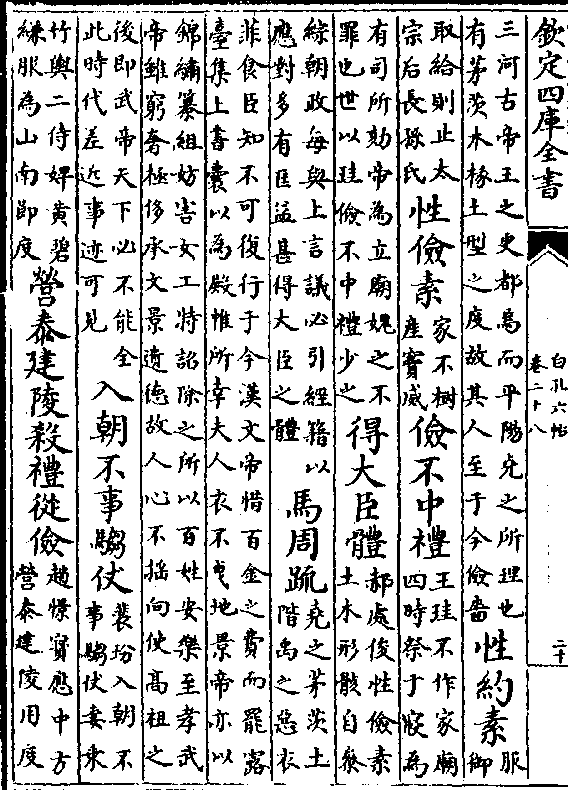 欽定四庫全書
白孔六帖
卷二十八
二十
三河古帝王之更都焉而平陽堯之所理也
有茅茨木椽土型之度故其人至于今儉嗇
性約素
服
御
取給則止太
宗后長孫氏
性儉素
家不樹
產竇威
儉不中禮
王珪不作家廟
四時祭于寢為
有司所劾帝為立廟媿之不
罪也世以珪儉不中禮少之
得大臣體
郝處俊性儉素
土木形骸自參
綜朝政每與上言議必引經籍以
應對多有匡益甚得大臣之體
馬周疏
堯之茅茨土
階禹之惡衣
菲食臣知不可復行于今漢文帝惜百金之費而罷露
臺集上書囊以為殿帷所幸夫人衣不曳地景帝亦以
錦繡纂組妨害女工特詔除之所以百姓安樂至孝武
帝雖窮奢極侈承文景遺德故人心不搖向使高祖之
後即武帝天下必不能全
此時代差近事迹可見
入朝不事騶仗
裴坋入朝不
事騶仗妻乘
竹輿二侍婢黃碧
練服為山南節度
營泰建陵殺禮從儉
趙憬寶應中方
營泰建陵用度